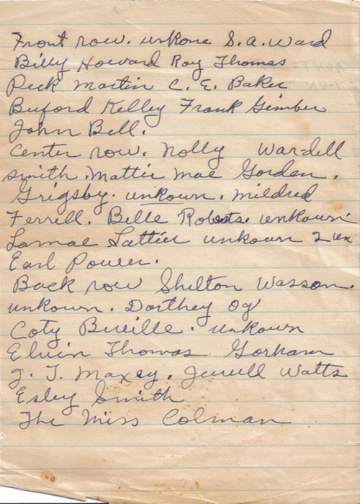 Front row. unkone S. A. Ward
Billy Howard Roy Thomas
Peck Martin C. E. Baker
Buford Kelley Frank Gimber
John Bell.
Center row. Nolly Wardell
Smith. Mattie Mae Gordan.
Grigsby. unkown. Mildred
Ferrell. Belle Roberts. unkown.
Lamae Lattier unkown 2 un
Earl Power.
Back row Shelton Wasson.
unkown. Dorthey
Coty. unkown
Elvin Thomas Gorham
J. T. Maxey. Jewell Watts
Esley Smith
The Miss Colman